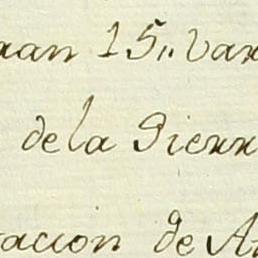 aan 15,, Var
dela Sierr
acion de A